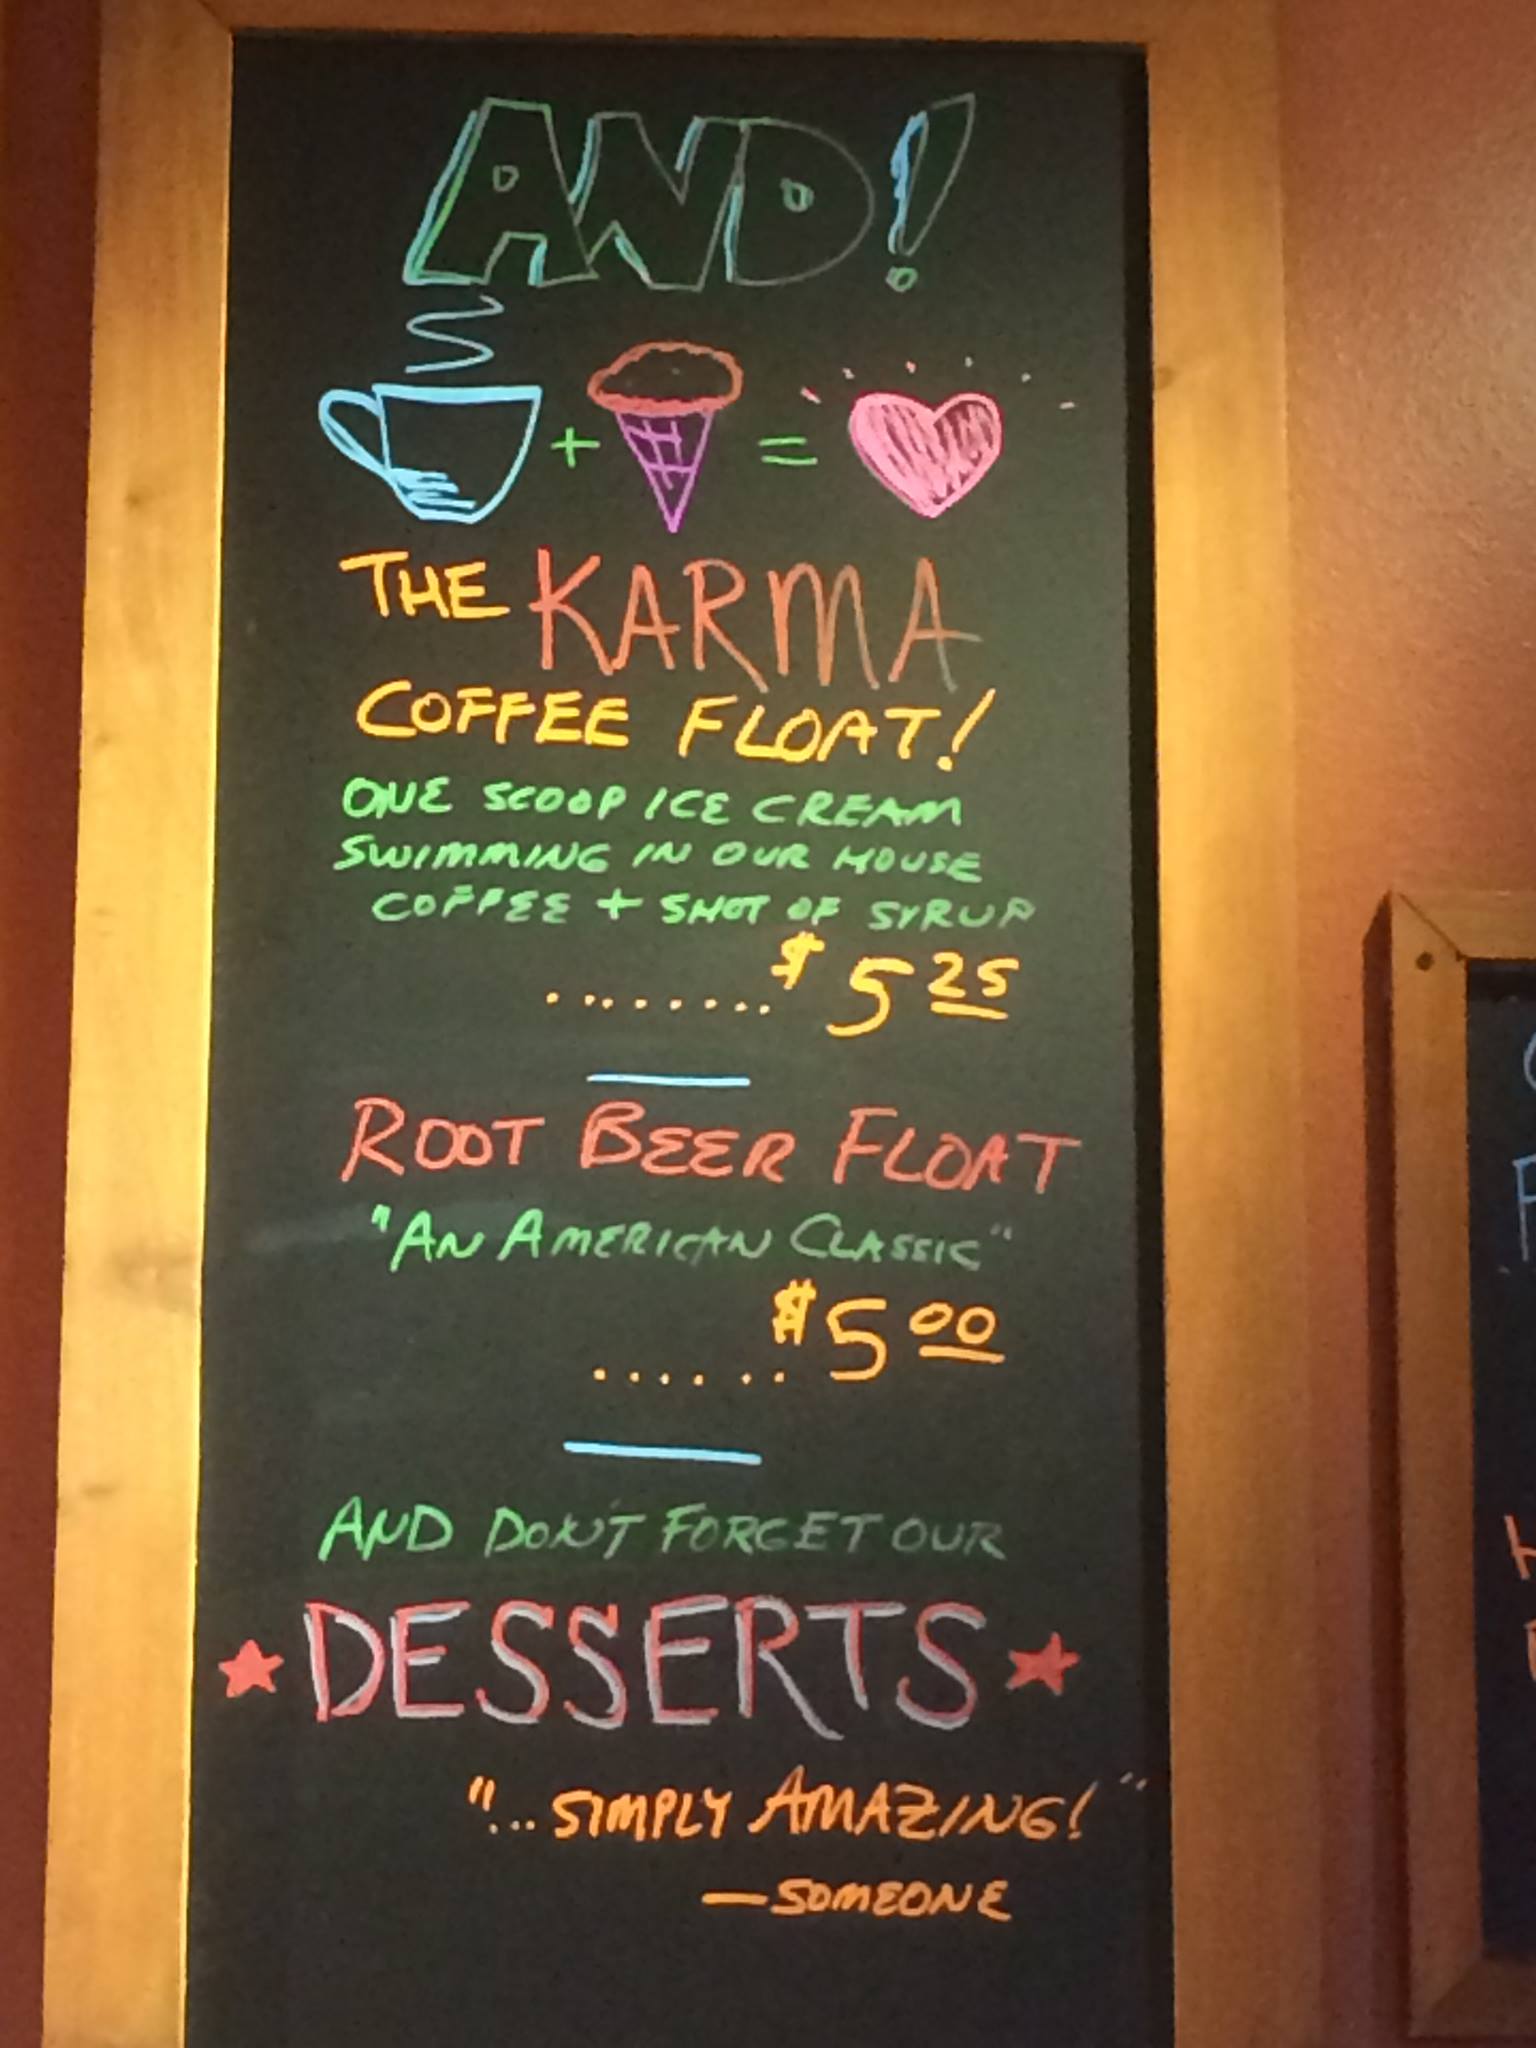 AND!
+ =
THE KARMA
COFFEE FLOAT!
ONE SCOOP ICE CREAM
SWIMMING IN OUR HOUSE
COFFEE + SHOT OF SYRUP
........$5 25
ROOT BEER FLOAT
"AN AMERICAN CLASSIC"
......$5 00
AND DON'T FORGET OUR
DESSERTS
"...SIMPLY AMAZING!"
—SOMEONE